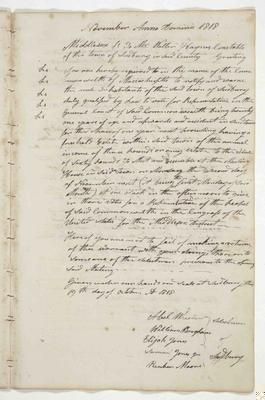 November Anno Domini 1818
Middlesex Ss. To Mr. Constable
of the town of Sudbury in said County Greeting
You are hereby required in the name of the Common
wealth of Massachusetts to notify and warn
the male Inhabitants of the said town of Sudbury
duly qualified by law to vote for Representatives in the
General Court of said Commonwealth being twenty
one years of age and upwards and resident in said town
for the space of one year next preceding having a
freehold Estate within said town of the annual
income of three pounds or any estate to the value
of sixty pounds to meet and assemble at the Meeting
House in said town on Monday the second day
of November next
at in the afternoon to give
in their votes for a Representative of the People
of said Commonwealth in the Congress of the
United States for the Middlesex District
Hereof you are not to fail of making a return
of this warrant with your doings thereon to
some one of the Selectmen previous to the
said Meeting.
Given under our hands and seals at Sudbury this
19th day of October AD 1818
Abel
William
Elijah Jones
Jones Jr
Reuben Moore
Selectmen
of
Sudbury